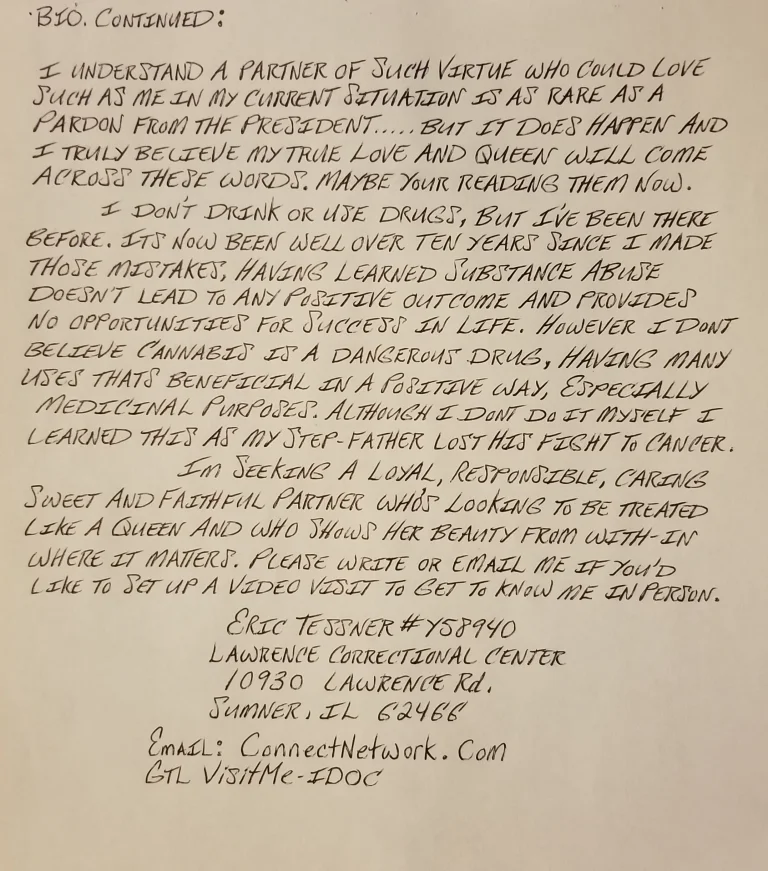 ·BIO. CONTINUED:
I UNDERSTAND A PARTNER OF SUCH VIRTUE WHO COULD LOVE
SUCH AS ME IN MY CURRENT SITUATION IS AS RARE AS A
PARDON FROM THE PRESIDENT..... BUT IT DOES HAPPEN AND
I TRULY BELIEVE MY TRUE LOVE AND QUEEN WILL COME
ACROSS THESE WORDS. MAYBE YOUR READING THEM NOW.
I DON'T DRINK OR USE DRUGS, BUT I'VE BEEN THERE
BEFORE. ITS NOW BEEN WELL OVER TEN YEARS SINCE I MADE
THOSE MISTAKES, HAVING LEARNED SUBSTANCE ABUSE
DOESN'T LEAD TO ANY POSITIVE OUTCOME AND PROVIDES
NO OPPORTUNITIES FOR SUCCESS IN LIFE. HOWEVER I DONT
BELIEVE CANNABIS IS A DANGEROUS DRUG, HAVING MANY
USES THATS BENEFICIAL IN A POSITIVE WAY, ESPECIALLY
MEDICINAL PURPOSES. ALTHOUGH I DONT DO IT MYSELF I
LEARNED THIS AS MY STEP-FATHER LOST HIS FIGHT TO CANCER.
IM SEEKING A LOYAL, RESPONSIBLE, CARING
SWEET AND FAITHFUL PARTNER WHO'S LOOKING TO BE TREATED
LIKE A QUEEN AND WHO SHOWS HER BEAUTY FROM WITH-IN
WHERE IT MATTERS. PLEASE WRITE OR EMAIL ME IF YOU'D
LIKE TO SET UP A VIDEO VISIT TO GET TO KNOW ME IN PERSON.
ERIC TESSNER #Y58940
LAWRENCE CORRECTIONAL CENTER
10930 LAWRENCE Rd.
SUMNER, IL 62466
EMAIL: ConnectNetwork.Com
GTL VisitMe-IDOC